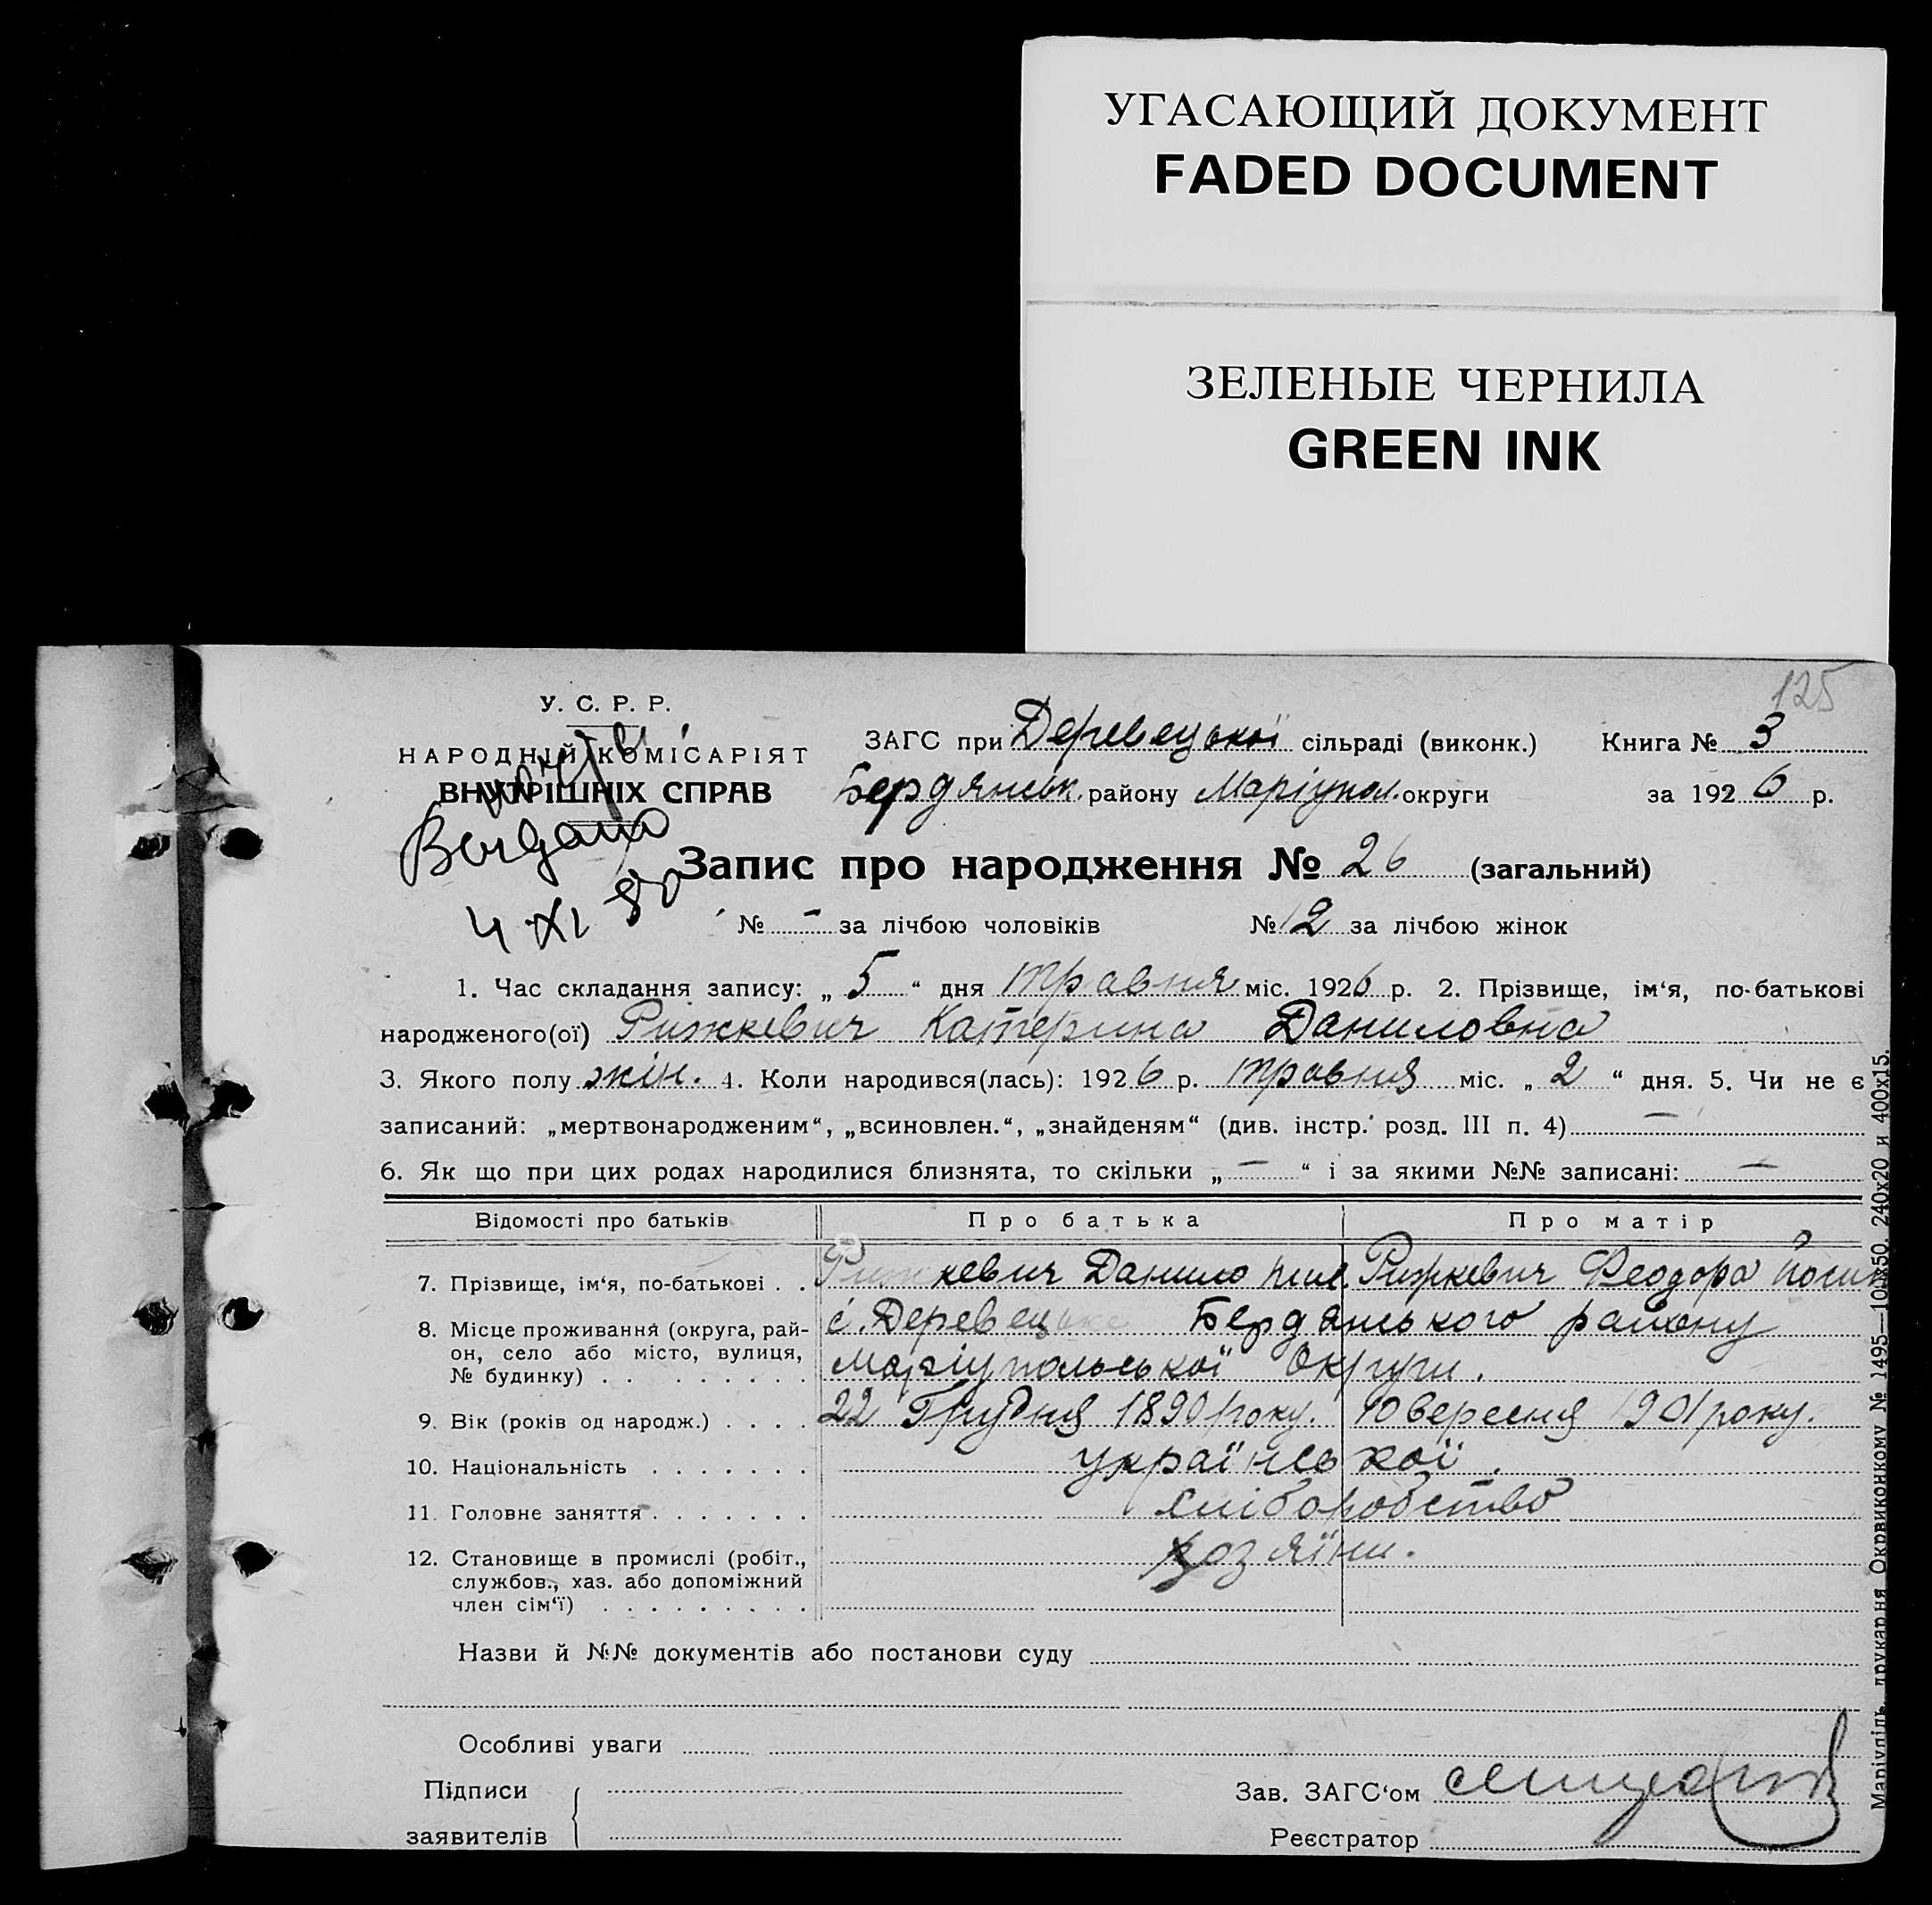 УГАСАЮЩИЙ ДОКУМЕНТ
FADED DOCUMENT
ЗЕЛЕНЫЕ ЧЕРНИЛА
GREEN INK
125
У. С. Р. Р.
НАРОДНІЙ КОМІСАРІЯТ
ВНУТРІШНІХ СПРАВ
4 XI 80
ЗАГС при Деревецької сільраді (виконк.) Книга № 3
Бердянськ. району Маріупол. округи за 1926 р.
Запис про народження № 26 (загальний)
№ – за лічбою чоловіків № 12 за лічбою жінок
1. Час складання запису: „ 5 “ дня травня міс. 1926 р. 2. Прізвище, ім‘я, по-батькові
народженого(ої) Рижкевич Катерина Даниловна
3. Якого полу жін. 4. Коли народився(лась): 1926 р. травня міс. „ 2 “ дня. 5. Чи не є
записаний: „мертвонародженим“, „всиновлен.“, „знайденям“ (див. інстр. розд. III п. 4) –
6. Як що при цих родах народилися близнята, то скільки „ – “ і за якими №№ записані: –
Відомості про батьків Про батька Про матір
7. Прізвище, ім‘я, по-батькові . . Рижкевич Данило Рижкевич Феодора
8. Місце проживання (округа, рай-
он, село або місто, вулиця,
№ будинку) . . . . . . . .
с. Деревецьке Бердянського району
Маріупольської Округи.
9. Вік (років од народж.) . . . . 22 Грудня 1890 року. 10 вересня 1901 року.
10. Національність . . . . . . . української.
11. Головне заняття . . . . . . . хліборобство
12. Становище в промислі (робіт.,
службов., хаз. або допоміжний
член сім‘ї) . . . . . . . . .
хозяїни.
Назви й №№ документів або постанови суду
Особливі уваги
Підписи
заявителів
Зав. ЗАГС‘ом
Реєстратор
Маріупіль, друкарня Окрвиконкому № 1495—100х50, 240х20 и 400х15.